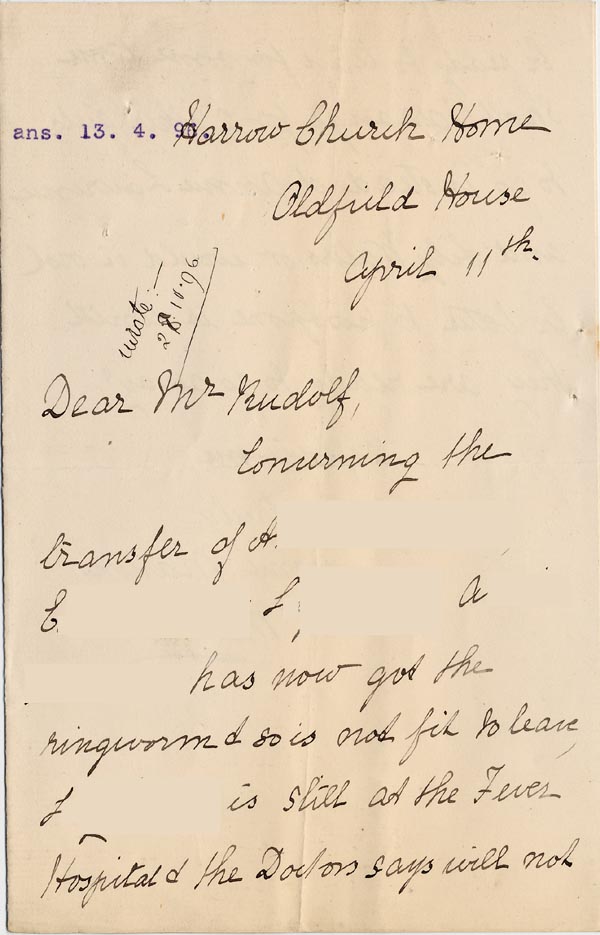 ans. 13. 4. 96.
Harrow Church Home
Oldfield House
April 11th.
wrote:—
28.10.96
Dear Mr Rudolf,
Concerning the
transfer of A.
E. L, A
has now got the
ringworm & so is not fit to leave,
L is still at the Fever
Hospital & the Doctors says will not